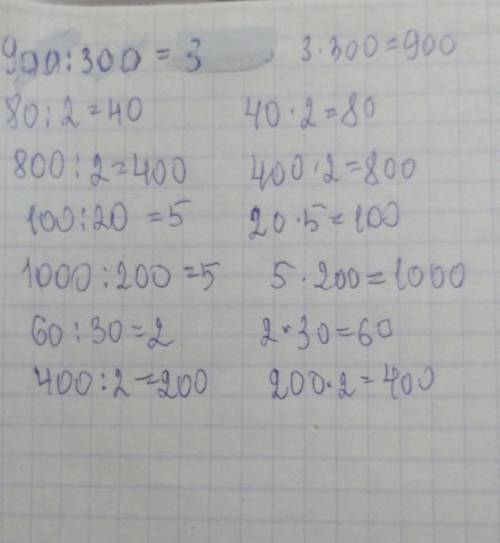 900:300=3 3·300=900
80:2=40 40·2=80
800:2=400 400·2=800
100:20=5 20·5=100
1000:200=5 5·200=1000
60:30=2 2·30=60
400:2=200 200·2=400